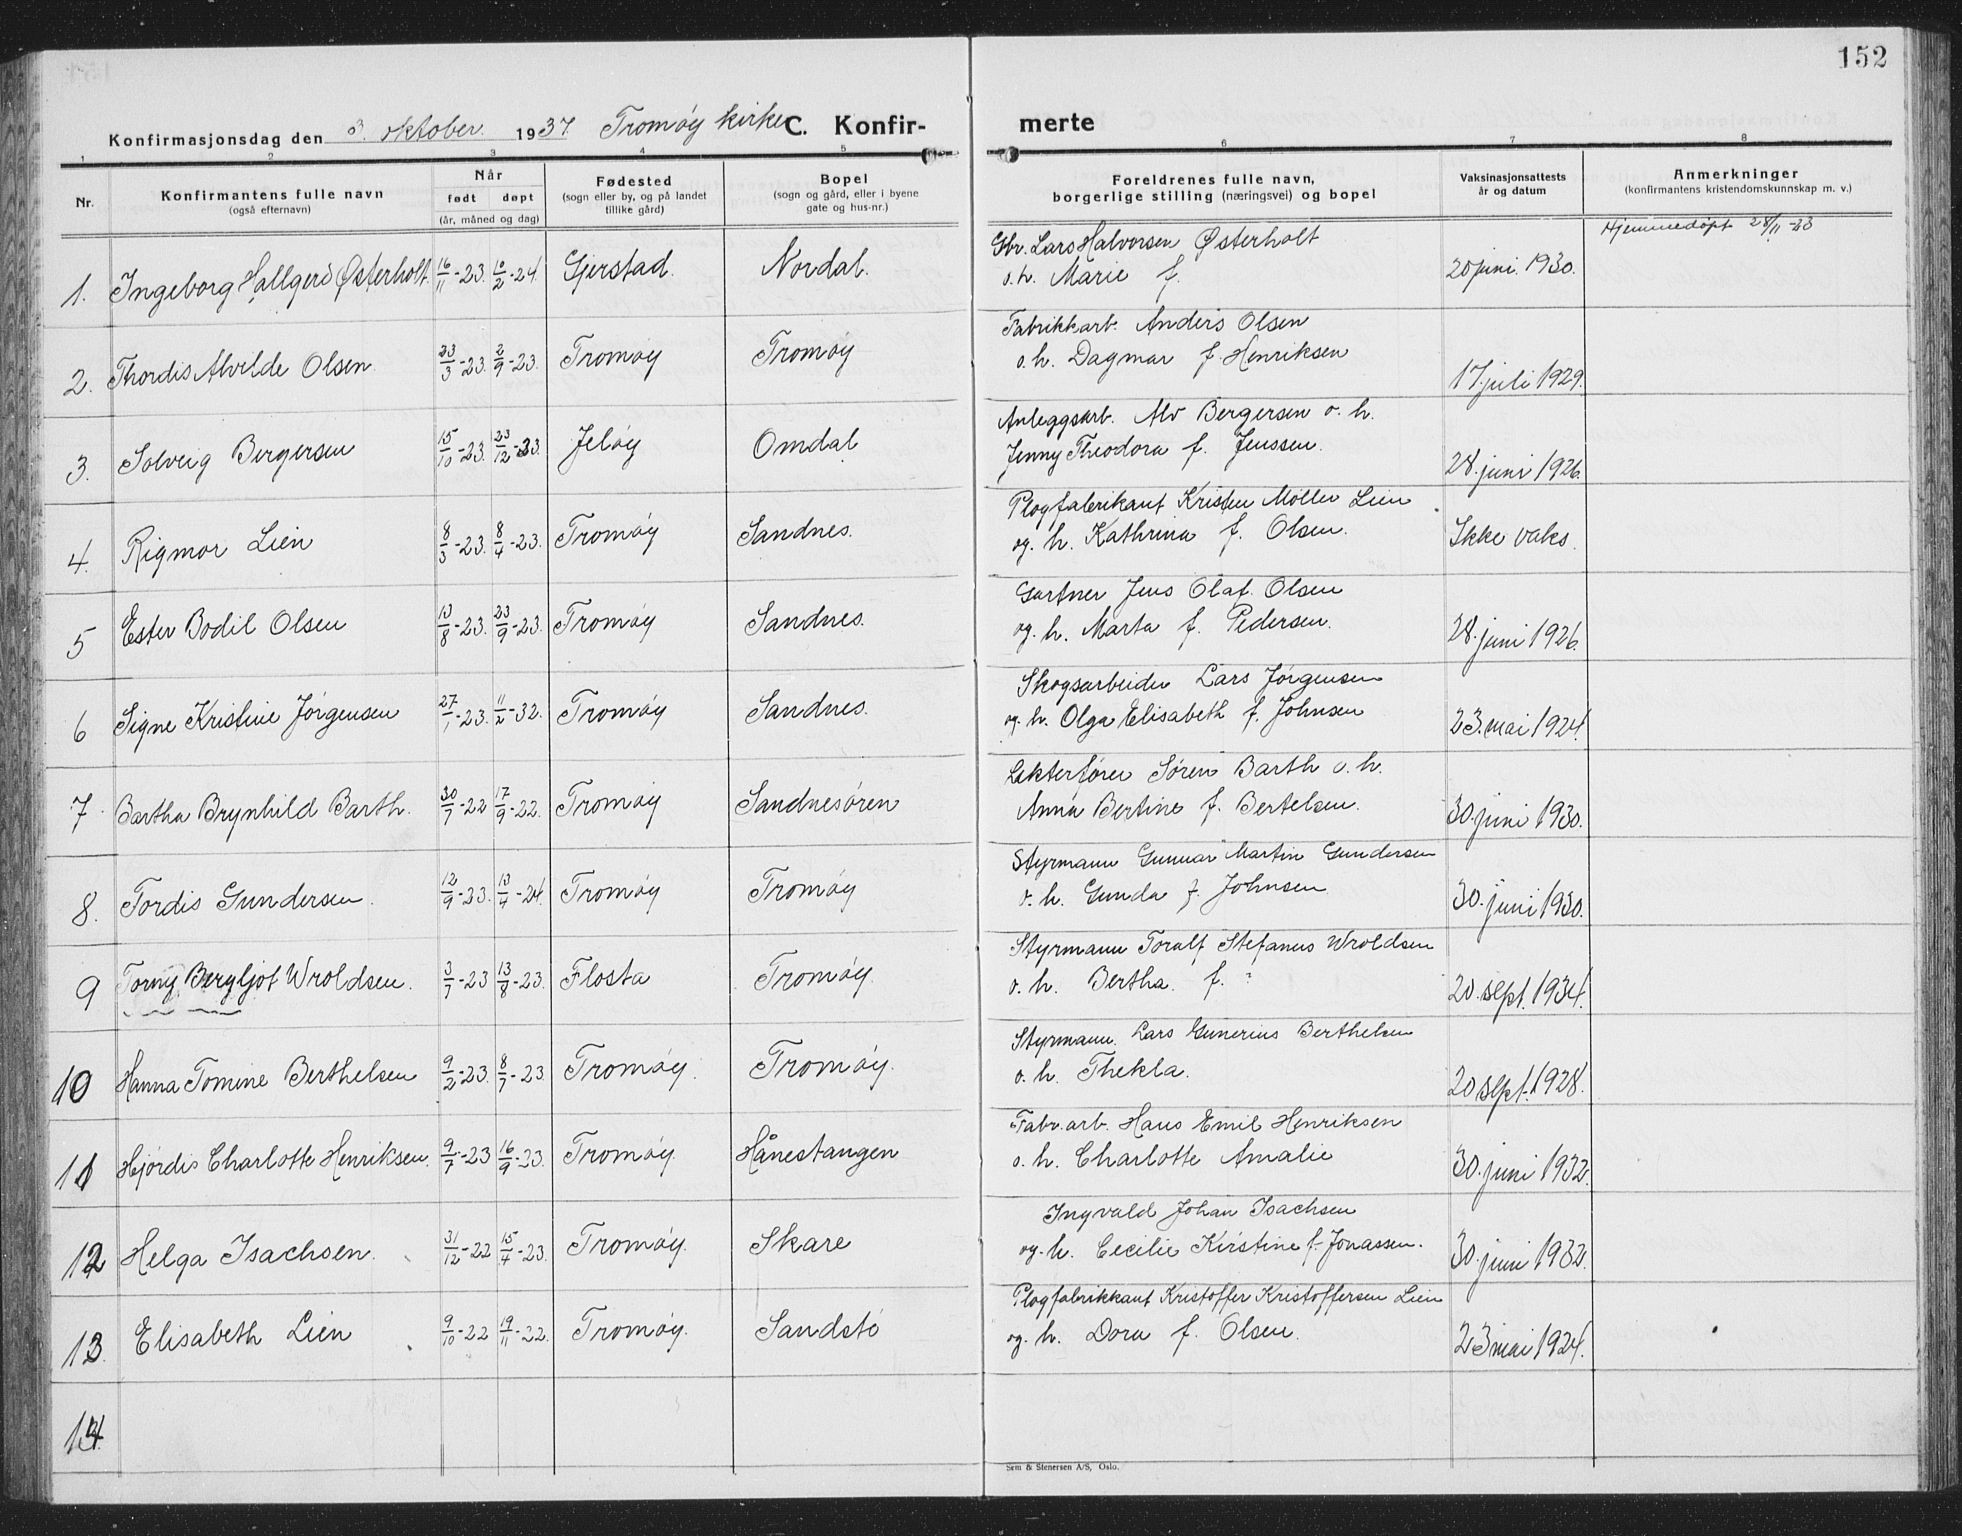 152
Konfirmasjonsdag den 3. oktober 1937. Tromøy kirke C. Konfir-
merte
1 2 3 4 5
6 7 8
Nr.
Konfirmantens fulle navn
(også efternavn)
Når
født døpt
(år, måned og dag)
Fødested
(sogn eller by, og på landet
tillike gård)
Bopel
(sogn og gård, eller i byene
gate og hus-nr.)
Foreldrenes fulle navn,
borgerlige stilling (næringsvei) og bopel
Vaksinasjonsattests
år og datum
Anmerkninger
(konfirmantens kristendomskunnskap m. v.)
1. Ingeborg Hallgerd Østerholt. 16/11-23. 10/2-24. Gjerstad. Nordal.
Gbr. Lars Halvorsen Østerholt
o. h. Marie f.
20 juni 1930.
Hjemmedøpt 28/11-23
2. Thordis Alvilde Olsen. 23/3-23. 2/9-23. Tromøy Tromøy
Fabrikkarb. Anders Olsen
o. h. Dagmar f. Henriksen
17. juli 1929.
3. Solveig Bergersen 15/10-23. 23/12-23. Jeløy Omdal
Anleggsarb. Alv Bergersen o. h.
Jenny Theodora f. Jenssen.
28. juni 1926.
4. Rigmor Lien 8/3-23. 8/4-23. Tromøy Sandnes.
Plogfabrikant Kristen Møller Lien
og. h. Kathrina f. Olsen.
Ikke vaks.
5 Ester Bodil Olsen 13/8-23. 23/9-23. Tromøy Sandnes.
Gartner Jens Olaf Olsen
og. h. Marta f. Pedersen.
28. juni 1926.
6 Signe Kristine Jørgensen 27/1-23. 11/2-32. Tromøy Sandnes.
Skogsarbeider Lars Jørgensen
og. h. Olga Elisabeth f. Johnsen
23. mai 1924.
7 Bartha Brynhild Barth. 30/7-22 17/9-22. Tromøy Sandnesøren
Lekterfører Søren Barth o. h.
Anna Bertine f. Bertelsen.
30. juni 1930.
8. Tordis Gundersen. 12/9-23. 13/4-24. Tromøy Tromøy
Styrmann Gunnar Martin Gundersen
o. h. Gunda f. Johnsen
30. juni 1930.
9 Torny Bergljot Wroldsen. 3/7-23 13/8-23. Flosta Tromøy.
Styrmann Toralf Stefanus Wroldsen
o. h. Bertha. f. ?
20. sept. 1934.
10 Hanna Tomine Berthelsen 9/2-23. 8/7-23. Tromøy. Tromøy.
Styrmann. Lars Gunerius Berthelsen
o. h. Thekla.
20 sept. 1928.
11 Hjørdis Charlotte Henriksen. 9/7-23 16/9-23. Tromøy. Hånestangen
Fabr. arb. Hans Emil Henriksen
o. h. Charlotte Amalie
30. juni 1932.
12 Helga Isachsen. 31/12-22 15/4-23. Tromøy. Skare
Ingvald Johan Isachsen
og. h. Cecilie Kirstine f. Jonassen.
30. juni 1932.
13. Elisabeth Lien 9/10-22 19/11-22. Tromøy. Sandstø
Plogfabrikkant Kristoffer Kristoffersen Lien
og. h. Dora f. Olsen.
23 mai 1924.
14.
Sem & Stenersen A/S, Oslo.